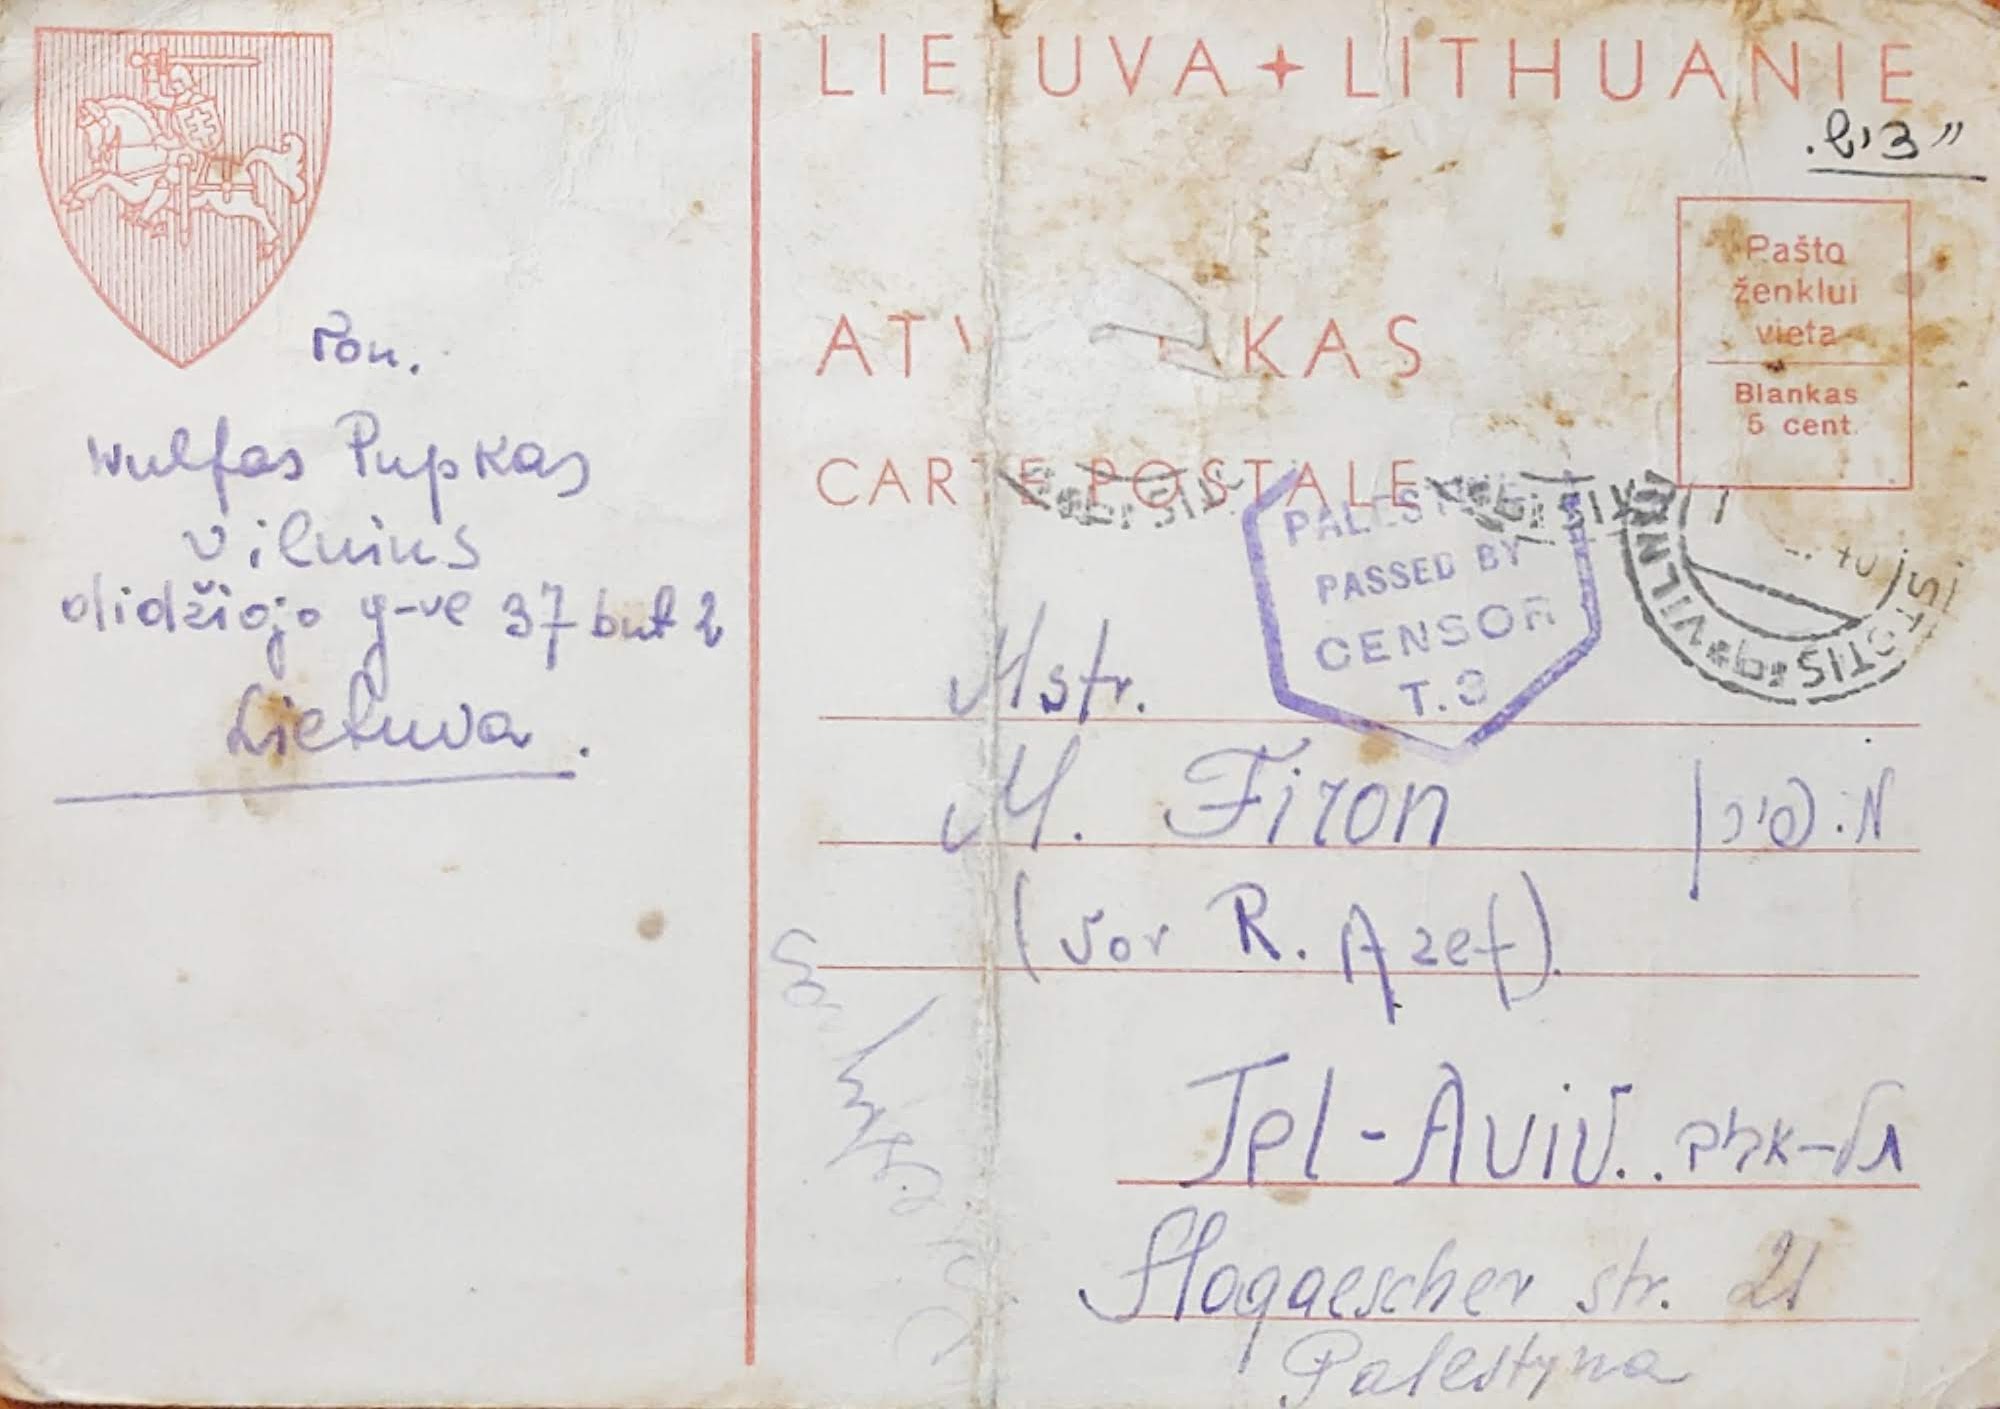 LIETUVA LITHUANIE
Pašto
ženklui
vieta
Blankas
5 cent.
AT KAS
CARTE POSTALE
PALEST
PASSED BY
CENSOR
T.3
VILNIUS
von.
Wulfas Pupkas
Vilnius
didžiojo g-ve 37 but 2
Lietuva.
Mstr.
M. Firon מ. פירון
(vor R. Azef).
Tel-Aviv. תל-אביב
str. 21
Palestyna